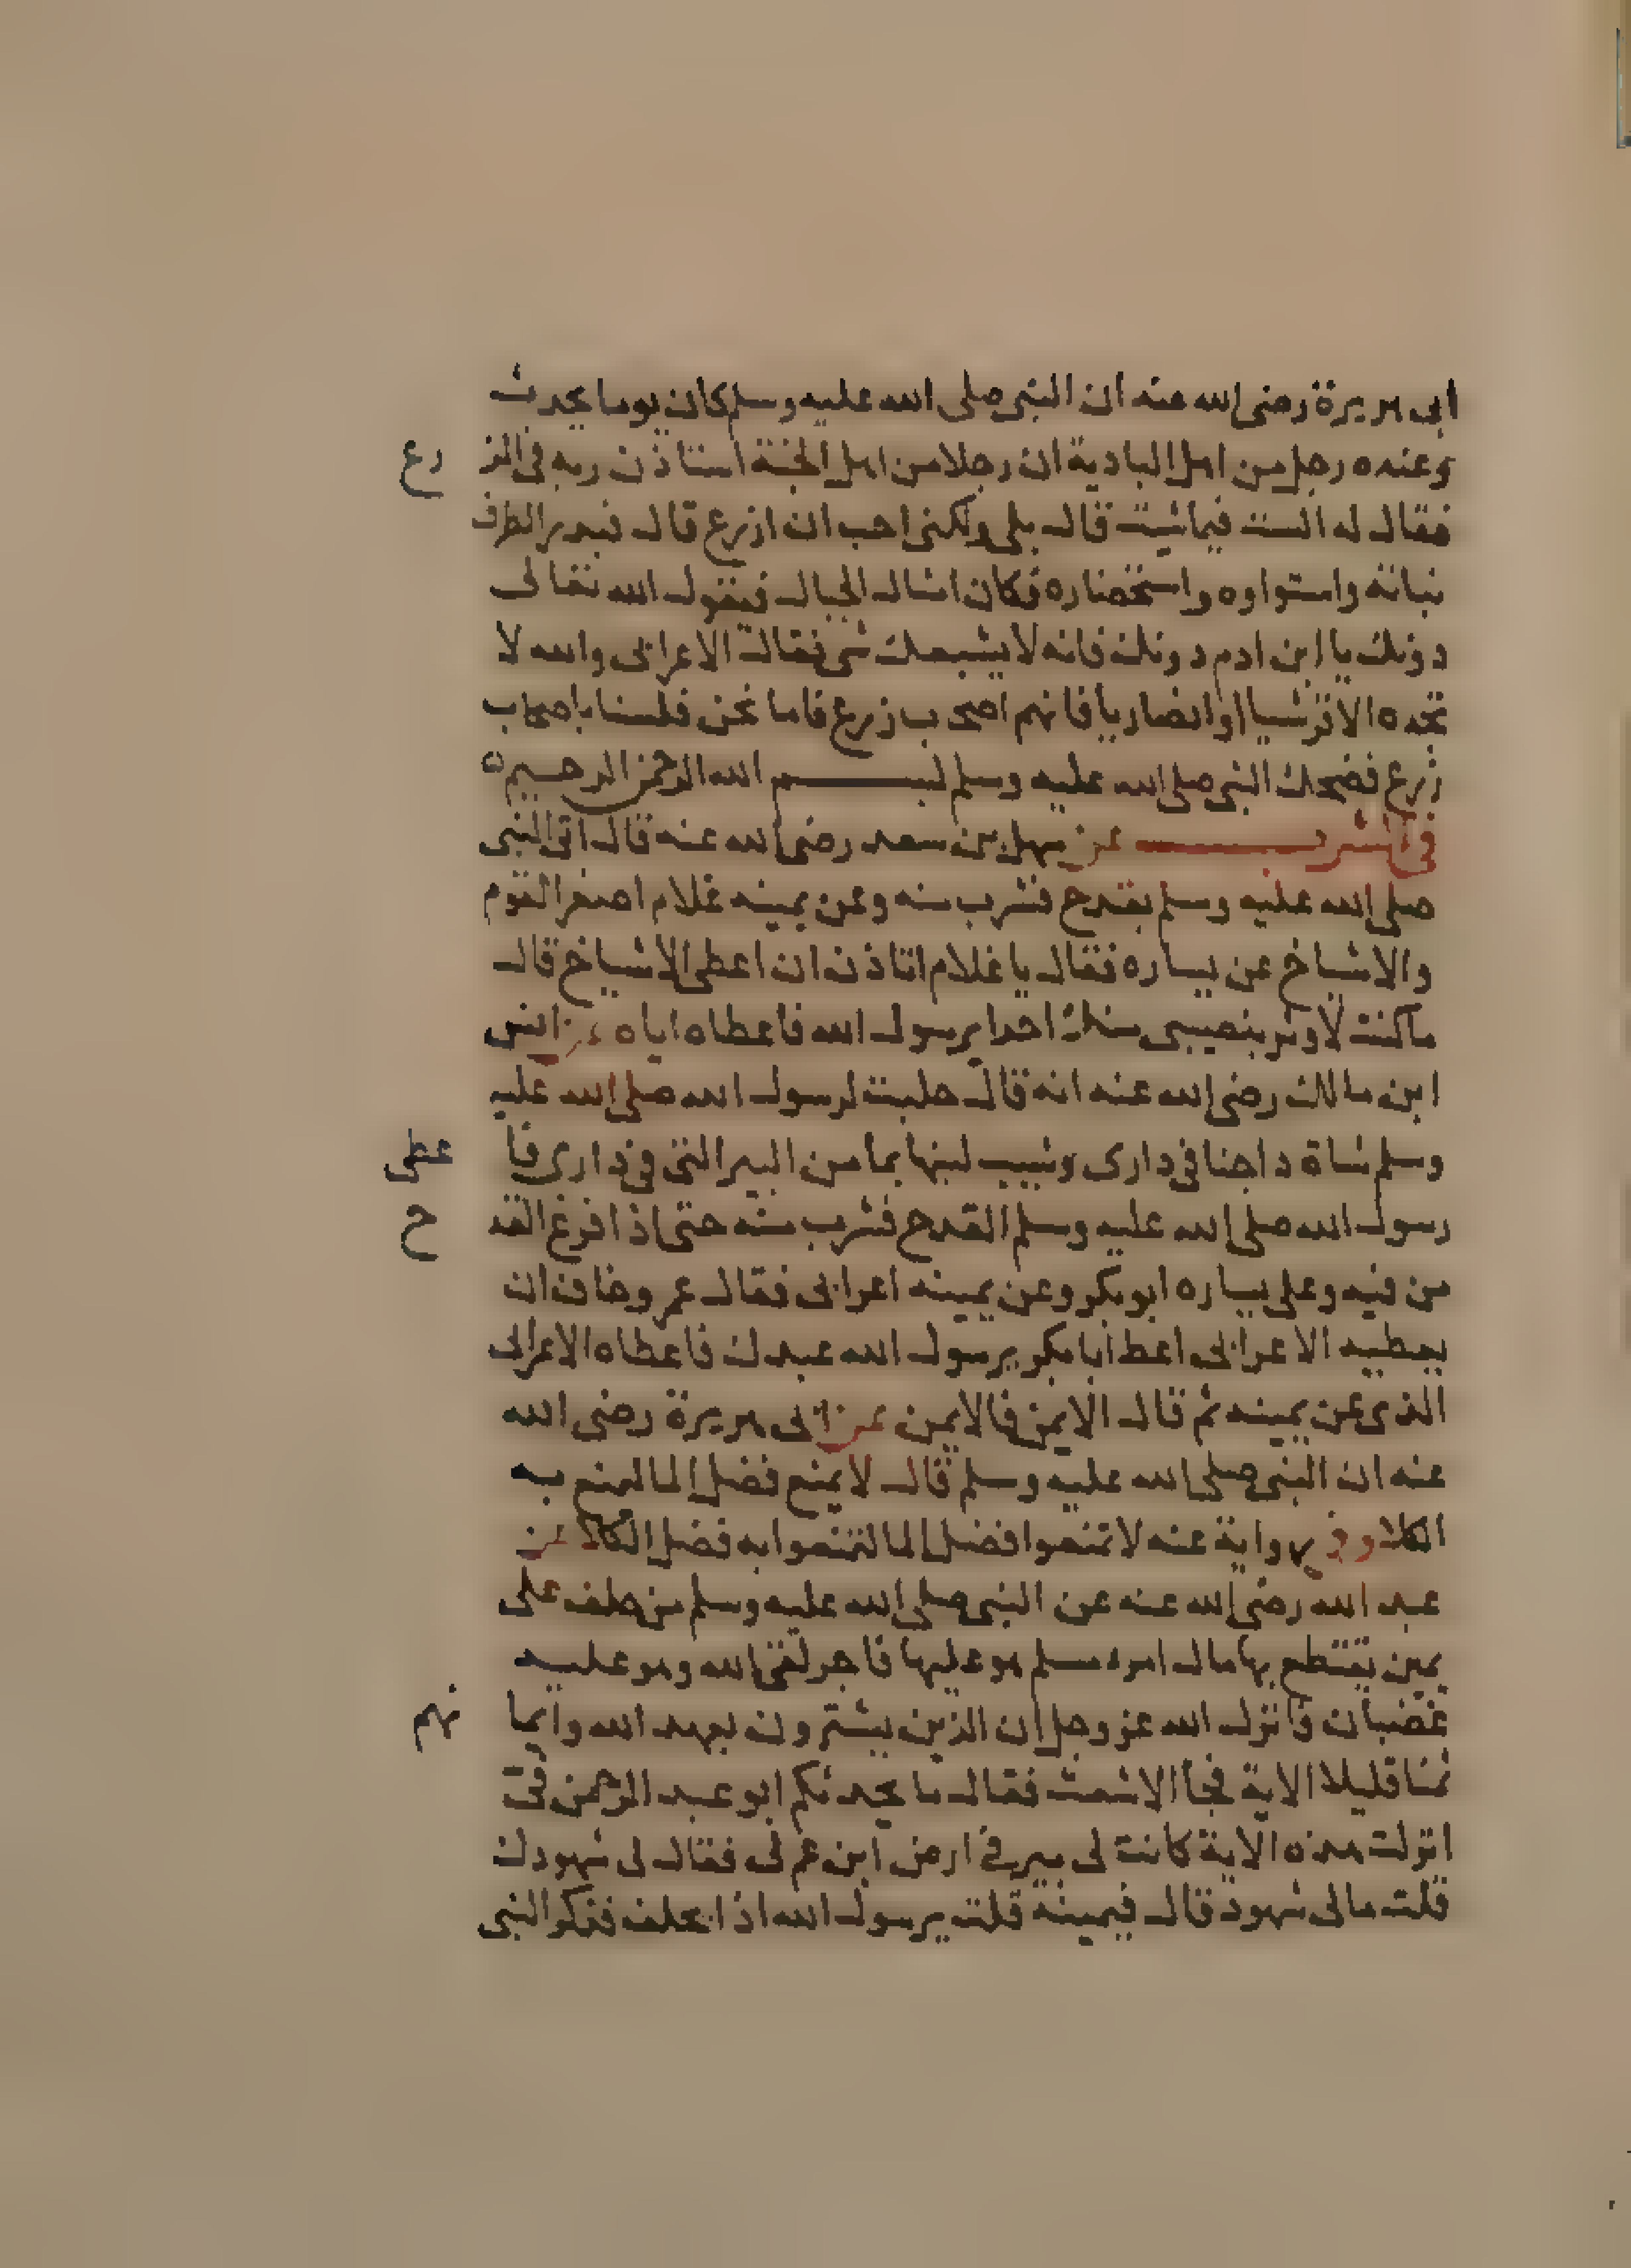 ابى هريرة رضى الله عنه ان النبى صلى الله عليه وسلم كان يوما يحدث
وعنده رجل من اهل البادية ان رجلا من اهل الجنة استاذن ربه فى الز رع
فقال له الست فيما شيت قال بلى ولكنى احب ان ازرع قال فبدر الطرف
نباته واستواوه واستحضاره فكان امثال الجبال فيقول الله تعالى
دونك يا ابن ادم دونك فانه لا يشبعك شى فقال الاعرابى والله لا
تجده الا قرشيا او انصاريا فانهم اصحب زرع فاما نحن فلسنا باصحاب
زرع فضحك النبى صلى الله عليه وسلم بسم الله الرحمن الرحيم ه
فى الشرب عن سهل بن سعد رضى الله عنه قال اتى النبى
صلى الله عليه وسلم بقدح فشرب منه وعن يمينه غلام اصغر القوم
والاشياخ عن يساره فقال يا غلام اتاذن ان اعطى الاشياخ قال
ما كنت لاوثر بنصيبى منك احدا يرسول الله فاعطاه اياه عن انس
ابن مالك رضى الله عنه انه قال حلبت لرسول الله صلى الله عليه
وسلم شاة داجنا فى دارى وشيب لبنها بما من البير التى فى دارى فا عطى
رسول الله صلى الله عليه وسلم القدح فشرب منه حتى اذا فرغ القد ح
من فيه وعلى يساره ابو بكر وعن يمينه اعرابى فقال عمر وخاف ان
يعطيه الاعرابى اعط ابا بكر يرسول الله عندك فاعطاه الاعرابى
الذى عن يمينه ثم قال الايمن فالايمن عن ابى هريرة رضى الله
عنه ان النبى صلى الله عليه وسلم قال لا يمنع فضل الما لمنع به
الكلا وفى رواية عنه لا تمنعوا فضل الما لتمنعوا به فضل الكلا عن
عبد الله رضى الله عنه عن النبى صلى الله عليه وسلم من حلف على
يمين يقتطع بها مال امرء مسلم هو عليها فاجر لقى الله وهو عليه
غضبان فانزل الله عز وجل ان الذين يشترون بعهد الله وايما نهم
ثمنا قليلا الاية فجا الاشعث فقال ما يحدثكم ابو عبد الرحمن فى
انزلت هذه الاية كانت لى بير فى ارض ابن عم لى فقال لى شهودك
قلت مالى شهود قال فيمينه قلت يرسول الله اذا يحلف فذكر النبى